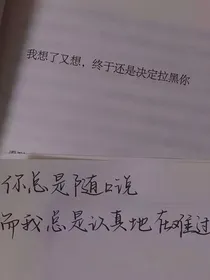 我想了又想，终于还是决定拉黑你
你总是随口说
而我总是认真地在难过